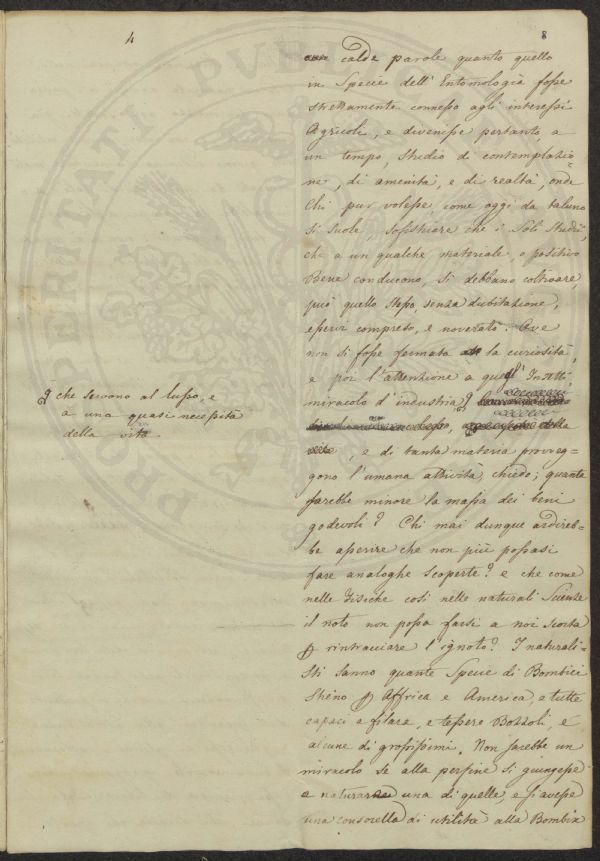 4
8
calde parole quanto quello
in Specie dell' Entomologia fosse
strettamente connesso agli interessi
Agricoli, e divenisse pertanto, a
un tempo, studio di contemplazio=
ne, di amenità, e di realtà, onde
chi pur volesse, come oggi da taluno
si suole, sofisticare che i soli studii,
che a un qualche materiale, o positivo
Bene conducono, si debbano coltivare,
può quello stesso, senza dubitazione,
esservi compreso, e noverato. Ove
non si fosse fermata la curiosità,
e poi l'attenzione a quell' Insetti,
miracolo d'industria,
che servono al lusso, e
a una quasi necessità
della vita
, e di tanta materia provveg=
gono l'umana attività, chiedo; quanta
sarebbe minore la massa dei beni
godevoli? Chi mai dunque ardireb=
be asserire che non più possasi
fare analoghe scoperte? e che come
nelle fisiche così nelle naturali Scienze
il noto non possa farsi a noi scorta
p rintracciare l'ignoto? I naturali=
sti sanno quante Specie di Bombici
sheno p Affrica e America, e tutte
capaci a filare, e tessere Bozzoli, e
alcune di grossissimi. Non sarebbe un
miracolo se alla perfine si giungesse
a naturar una di quelle, e si avesse
una consorella di utilità alla Bombix